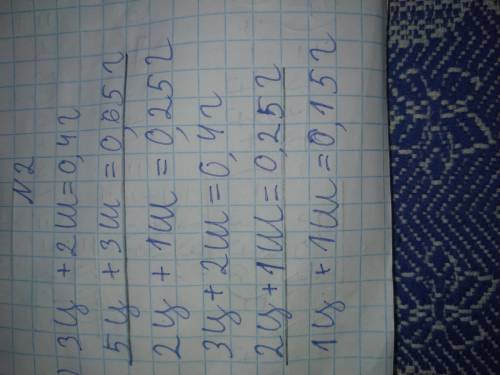 N2
) 3ц + 2ш = 0,4г
5ц + 3ш = 0,65г
2ц + 1ш = 0,25г
3ц + 2ш = 0,4г
2ц + 1ш = 0,25г
1ц + 1ш = 0,15г